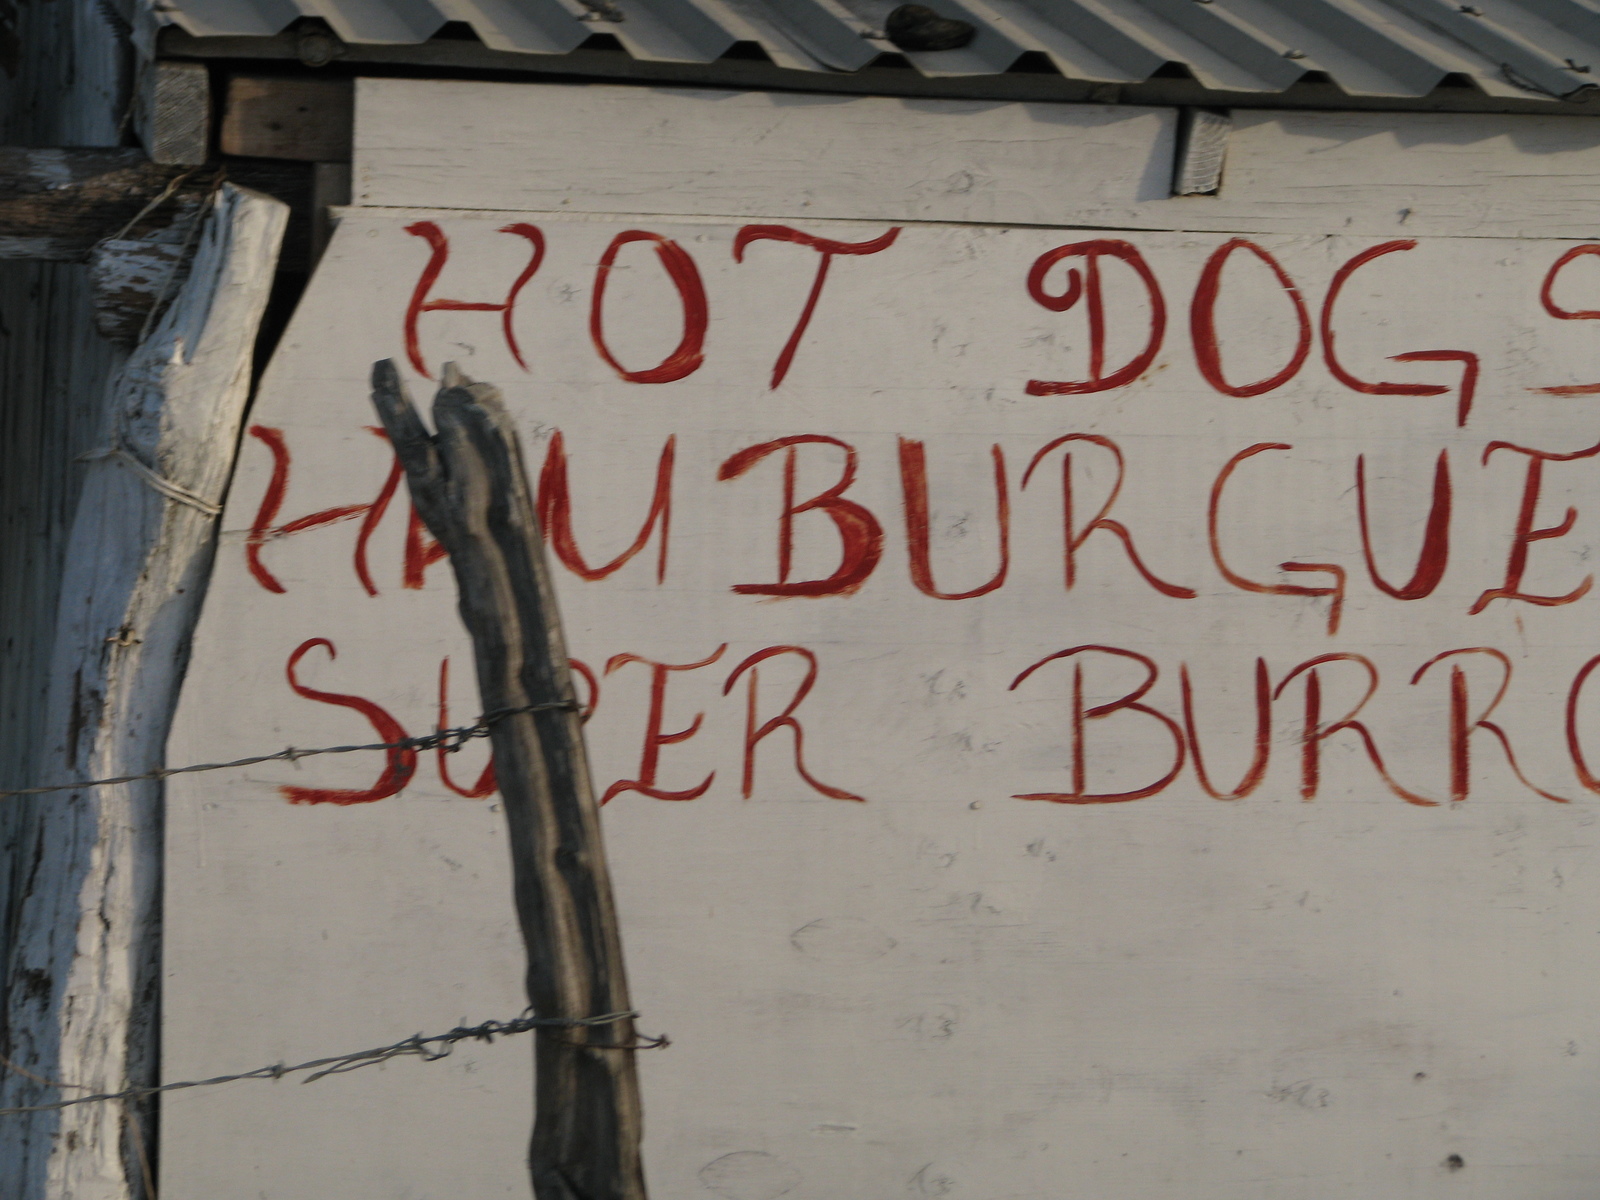 HOT DOGS
HAMBURGUE
SUPER BURRO